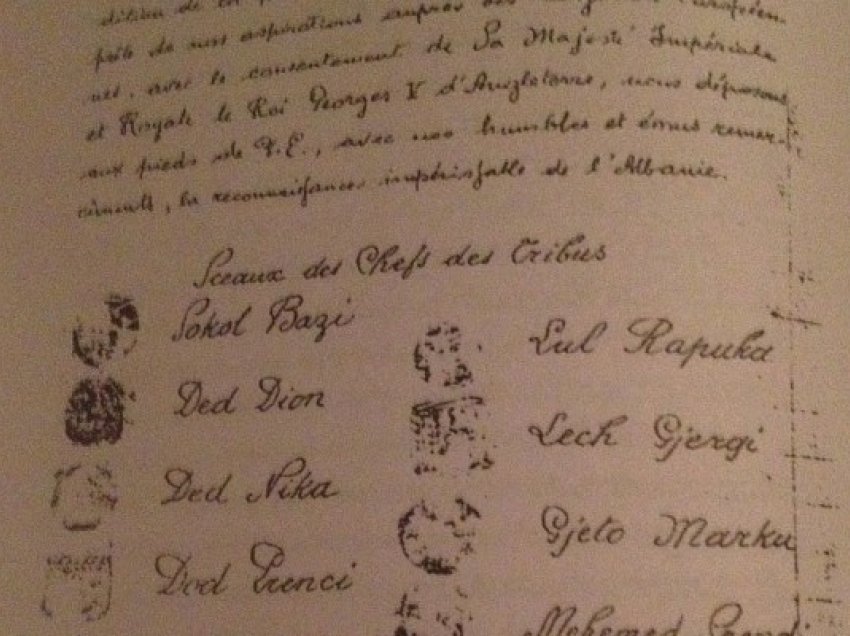 pète de nos aspirations auprès des
nes, avec le consentement de Sa Majesté Impériale
et Royale le Roi Georges V d'Angleterre, nous déposons
aux pieds de V.E., avec nos humbles et émus remer-
ciments, la reconnaissance impérissable de l'Albanie.
Sceaux des Chefs des Tribus
Sokol Bazi
Lul Rapuka
Ded Dion
Lech Gjergi
Ded Nika
Gjeto Marku
Dod Prenci
Mehemed